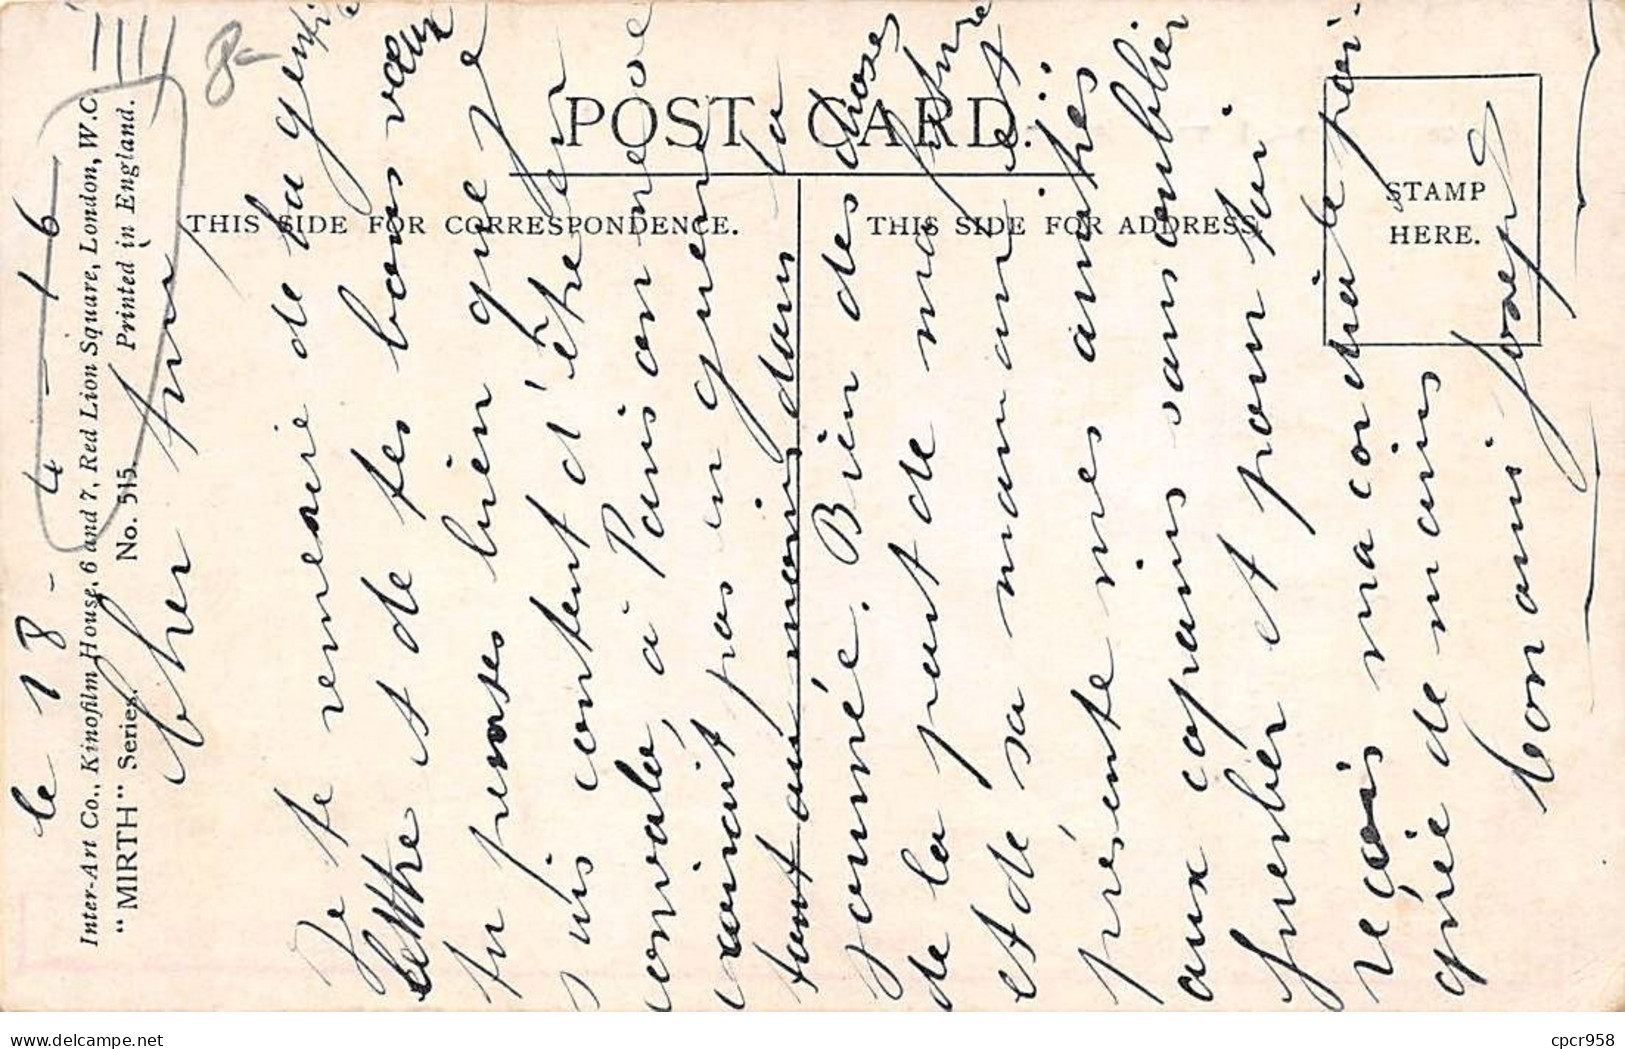 le 18-4-16
Inter-Art Co., Kinofilm House, 6 and 7, Red Lion Square, London, W.C.
"MIRTH" Series. No. 515. Printed in England.
Cher
8-
POST CARD.
THIS SIDE FOR CORRESPONDENCE.
THIS SIDE FOR ADDRESS.
STAMP
HERE.
Je te remercie de ta gentille
lettre et de tes bons vœux
tu penses bien que je
suis content d'être en
convalo, à Paris on ne voe
vraiment pas en guerre
tout au moins dans la
journée. Bien des choses
de la part de ma future
et de sa maman et
présente mes amitiés
aux copains sans oublier
et pour toi
reçois ma cordiale poi-
gnée de mains
ton ami Joseph
Items for sale on delcampe.net
cpcr958